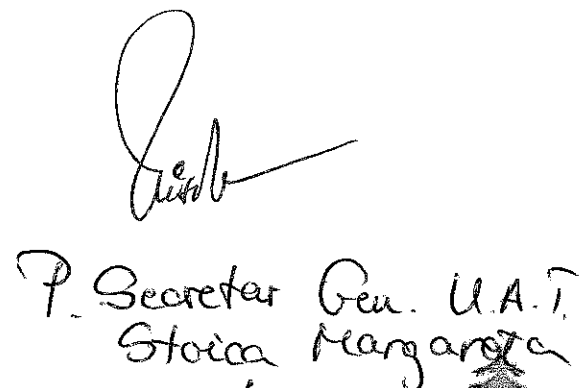 P. Secretar Gen. U.A.T.
Stoica Margareta